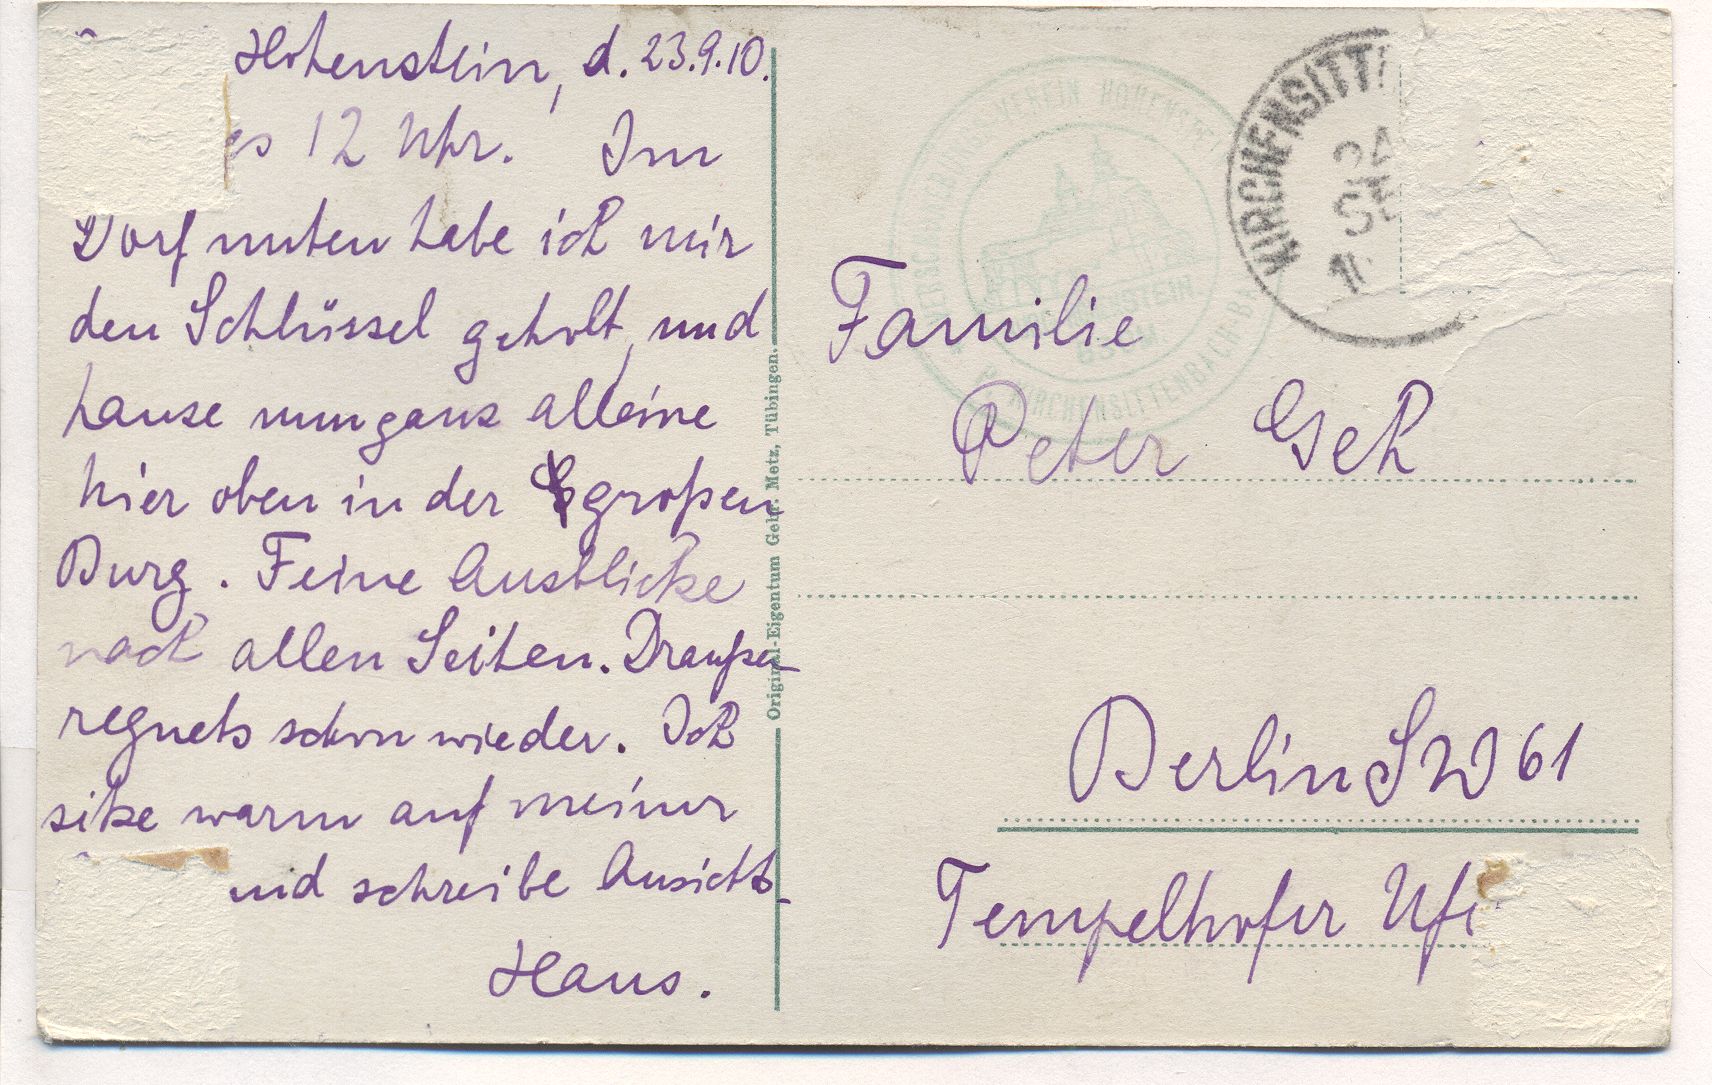 Hohenstein, d. 23.9.10.
12 Uhr. Im
Dorf unten habe ich mir
den Schlüssel geholt, und
hause nun ganz alleine
hier oben in der großen
Burg. Feine Ausblicke
nach allen Seiten. Draußen
regnets schon wieder. Ich
sitze warm auf meiner
und schreibe Ansichts-
Hans.
Original-Eigentum Gebr. Metz, Tübingen.
VERSCHÖNERUNGS-VEREIN HOHENSTEIN
HOHENSTEIN
P. KIRCHENSITTENBACH BAY
KIRCHENSITT
24
SE
Familie
Peter Geh
Berlin SW 61
Tempelhofer Ufe